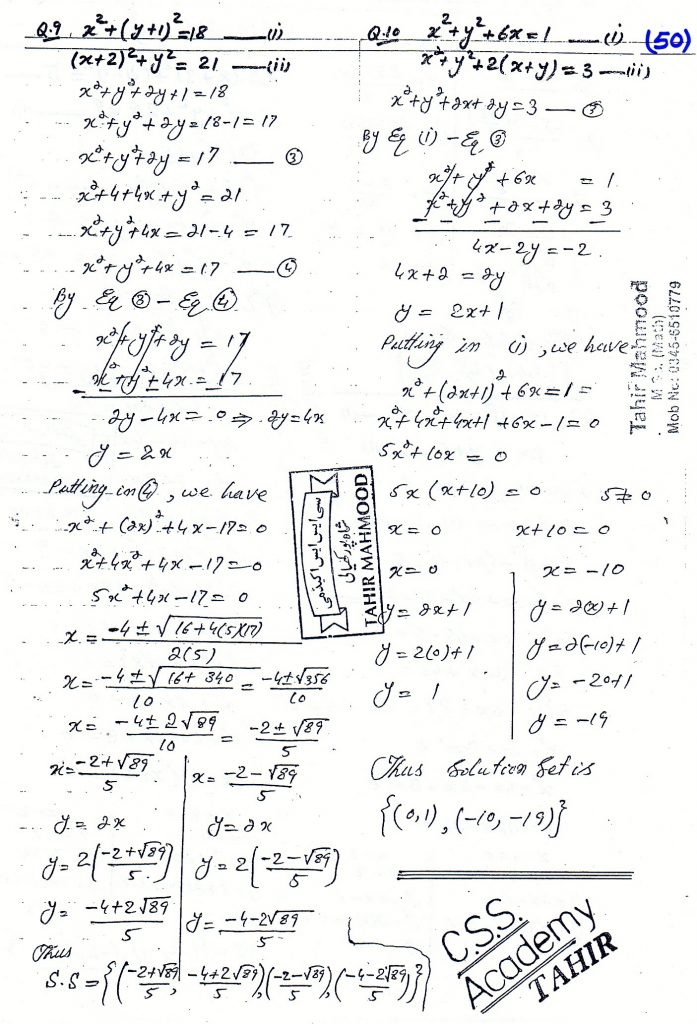 Q.9 x²+(y+1)²=18 —(i)
(x+2)²+y²=21 —(ii)
x²+y²+2y+1=18
x²+y²+2y=18-1=17
x²+y²+2y=17 — ③
x²+4+4x+y²=21
x²+y²+4x=21-4=17
x²+y²+4x=17 — ④
By Eq ③ - Eq ④
x²+y²+2y = 17
x²+y²+4x = 17
2y-4x=0 ⇒ 2y=4x
y=2x
Putting in ④, we have
x²+(2x)²+4x-17=0
x²+4x²+4x-17=0
5x²+4x-17=0
x = -4±√16+4(5)(17) / 2(5)
x = -4±√16+340 / 10 = -4±√356 / 10
x = -4±2√89 / 10 = -2±√89 / 5
x = -2+√89 / 5
y=2x
y=2(-2+√89 / 5)
y = -4+2√89 / 5
x = -2-√89 / 5
y=2x
y=2(-2-√89 / 5)
y = -4-2√89 / 5
Thus
S.S = {(-2+√89 / 5, -4+2√89 / 5), (-2-√89 / 5), (-4-2√89 / 5)}
Q.10 x²+y²+6x=1 —(i)
(50)
x²+y²+2(x+y)=3 —(ii)
x²+y²+2x+2y=3 — ③
By Eq (i) - Eq ③
x²+y²+6x = 1
x²+y²+2x+2y=3
4x-2y=-2
4x+2=2y
y = 2x+1
Putting in (i), we have
x²+(2x+1)²+6x=1=
x²+4x²+4x+1+6x-1=0
5x²+10x=0
5x(x+10)=0 5≠0
x=0
x+10=0
x=0
y=2x+1
y=2(0)+1
y=1
x=-10
y=2(x)+1
y=2(-10)+1
y=-20+1
y=-19
Thus Solution Set is
{(0,1), (-10,-19)}
Tahir Mahmood
M.Sc. (Math)
Mob No: 0345-6510779
سی ایس ایس اکیڈمی
TAHIR MAHMOOD
C.S.S.
Academy
TAHIR